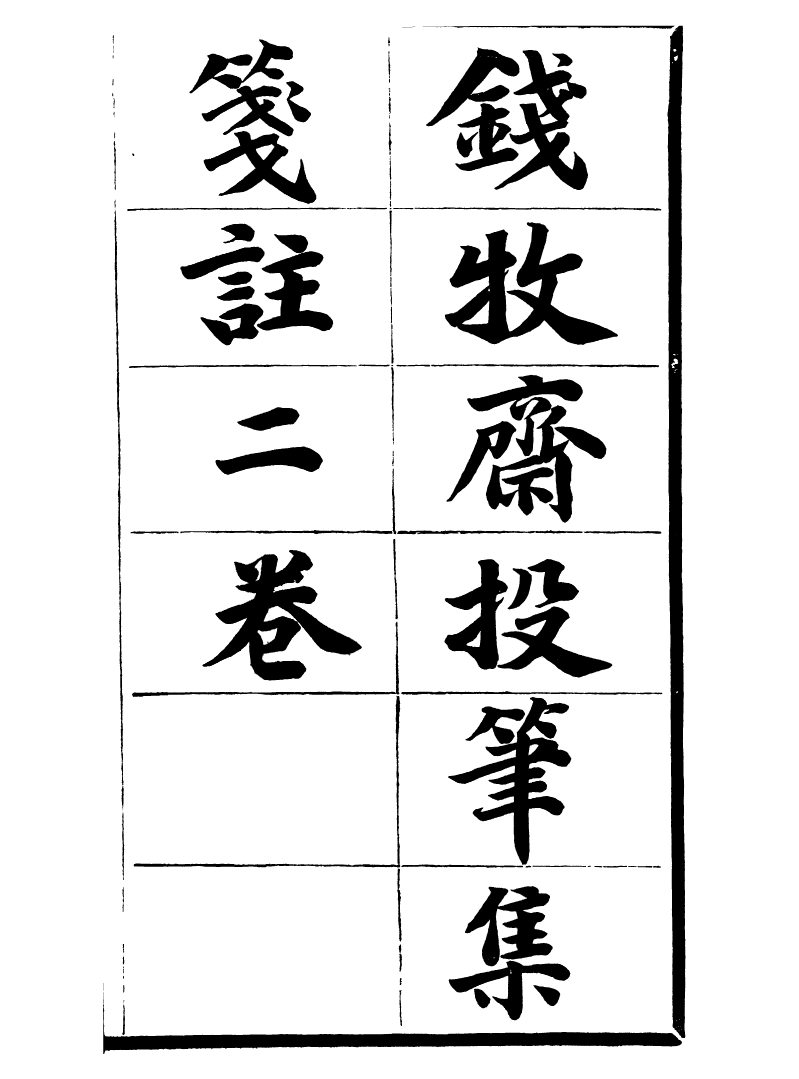 錢牧齋投筆集
箋註二卷